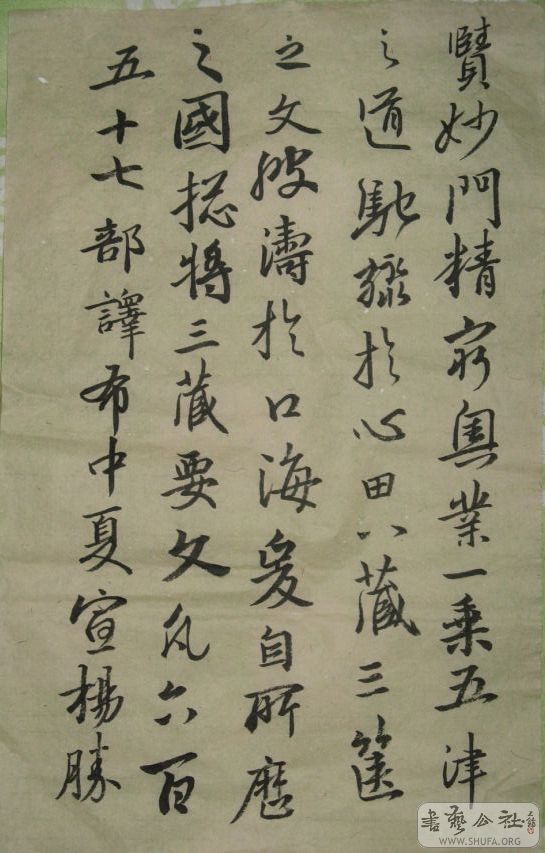 賢妙門精窮奧業一乘五津
之道馳驟於心田八藏三篋
之文波濤於口海爰自所歷
之國揔將三藏要文凡六百
五十七部譯布中夏宣楊勝
書藝公社
WWW.SHUFA.ORG